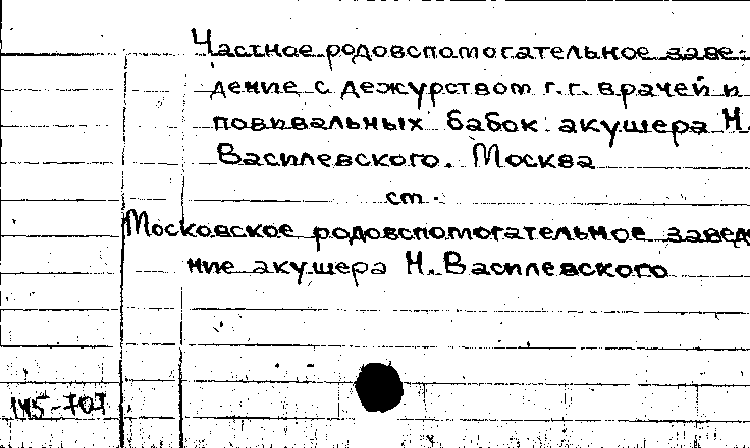 Частное родовспомогательное заве-
дение с дежурством г.г. врачей и
повивальных бабок акушера Н.
Василевского. Москва
ст.
Московское родовспомогательное завед
ние акушера Н. Василевского
145-707